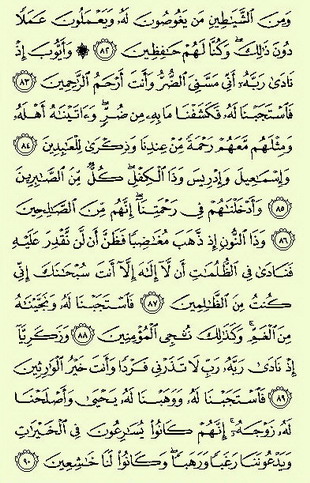 وَمِنَ ٱلشَّيَٰطِينِ مَن يَغُوصُونَ لَهُۥ وَيَعْمَلُونَ عَمَلًا
دُونَ ذَٰلِكَ ۖ وَكُنَّا لَهُمْ حَٰفِظِينَ ﴿٨٢﴾ ۞ وَأَيُّوبَ إِذْ
نَادَىٰ رَبَّهُۥٓ أَنِّى مَسَّنِىَ ٱلضُّرُّ وَأَنتَ أَرْحَمُ ٱلرَّٰحِمِينَ ﴿٨٣﴾
فَٱسْتَجَبْنَا لَهُۥ فَكَشَفْنَا مَا بِهِۦ مِن ضُرٍّ ۖ وَءَاتَيْنَٰهُ أَهْلَهُۥ
وَمِثْلَهُم مَّعَهُمْ رَحْمَةً مِّنْ عِندِنَا وَذِكْرَىٰ لِلْعَٰبِدِينَ ﴿٨٤﴾
وَإِسْمَٰعِيلَ وَإِدْرِيسَ وَذَا ٱلْكِفْلِ ۖ كُلٌّ مِّنَ ٱلصَّٰبِرِينَ
﴿٨٥﴾ وَأَدْخَلْنَٰهُمْ فِى رَحْمَتِنَآ ۖ إِنَّهُم مِّنَ ٱلصَّٰلِحِينَ
﴿٨٦﴾ وَذَا ٱلنُّونِ إِذ ذَّهَبَ مُغَٰضِبًا فَظَنَّ أَن لَّن نَّقْدِرَ عَلَيْهِ
فَنَادَىٰ فِى ٱلظُّلُمَٰتِ أَن لَّآ إِلَٰهَ إِلَّآ أَنتَ سُبْحَٰنَكَ إِنِّى
كُنتُ مِنَ ٱلظَّٰلِمِينَ ﴿٨٧﴾ فَٱسْتَجَبْنَا لَهُۥ وَنَجَّيْنَٰهُ
مِنَ ٱلْغَمِّ ۚ وَكَذَٰلِكَ نُۨجِى ٱلْمُؤْمِنِينَ ﴿٨٨﴾ وَزَكَرِيَّآ
إِذْ نَادَىٰ رَبَّهُۥ رَبِّ لَا تَذَرْنِى فَرْدًا وَأَنتَ خَيْرُ ٱلْوَٰرِثِينَ
﴿٨٩﴾ فَٱسْتَجَبْنَا لَهُۥ وَوَهَبْنَا لَهُۥ يَحْيَىٰ وَأَصْلَحْنَا
لَهُۥ زَوْجَهُۥٓ ۚ إِنَّهُمْ كَانُوا۟ يُسَٰرِعُونَ فِى ٱلْخَيْرَٰتِ
وَيَدْعُونَنَا رَغَبًا وَرَهَبًا ۖ وَكَانُوا۟ لَنَا خَٰشِعِينَ ﴿٩٠﴾